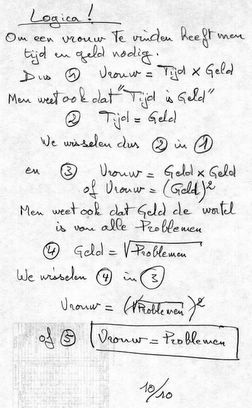 Logica!
Om een vrouw te vinden heeft men
tijd en geld nodig.
Dus ① Vrouw = Tijd × Geld
Men weet ook dat "Tijd is Geld"
② Tijd = Geld
We wisselen dus ② in ①
en ③ Vrouw = Geld × Geld
of Vrouw = (Geld)²
Men weet ook dat Geld de wortel
is van alle Problemen
④ Geld = √Problemen
We wisselen ④ in ③
Vrouw = (√Problemen)²
of ⑤ Vrouw = Problemen
10/10